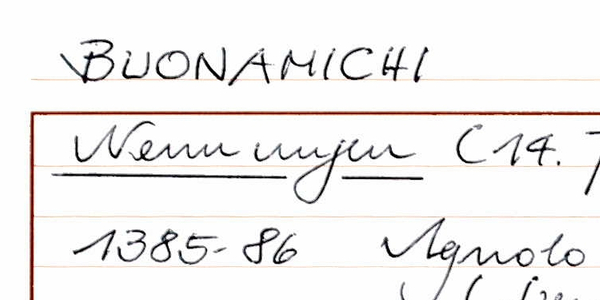 BUONAMICHI
Nennungen (14.
1385-86 Agnolo